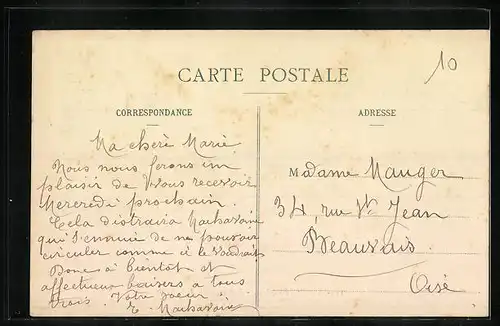 10
CARTE POSTALE
CORRESPONDANCE
ADRESSE
Ma chère Marie
Nous nous ferons un
plaisir de vous recevoir
Mercredi prochain.
Cela distraira
qui s'ennuie de ne pouvoir
circuler comme il le voudrait
Donc à bientôt et
affectueux baisers à tous
trois. Votre soeur
E.
Madame Mauger
34, rue St Jean
Beauvais.
Oise